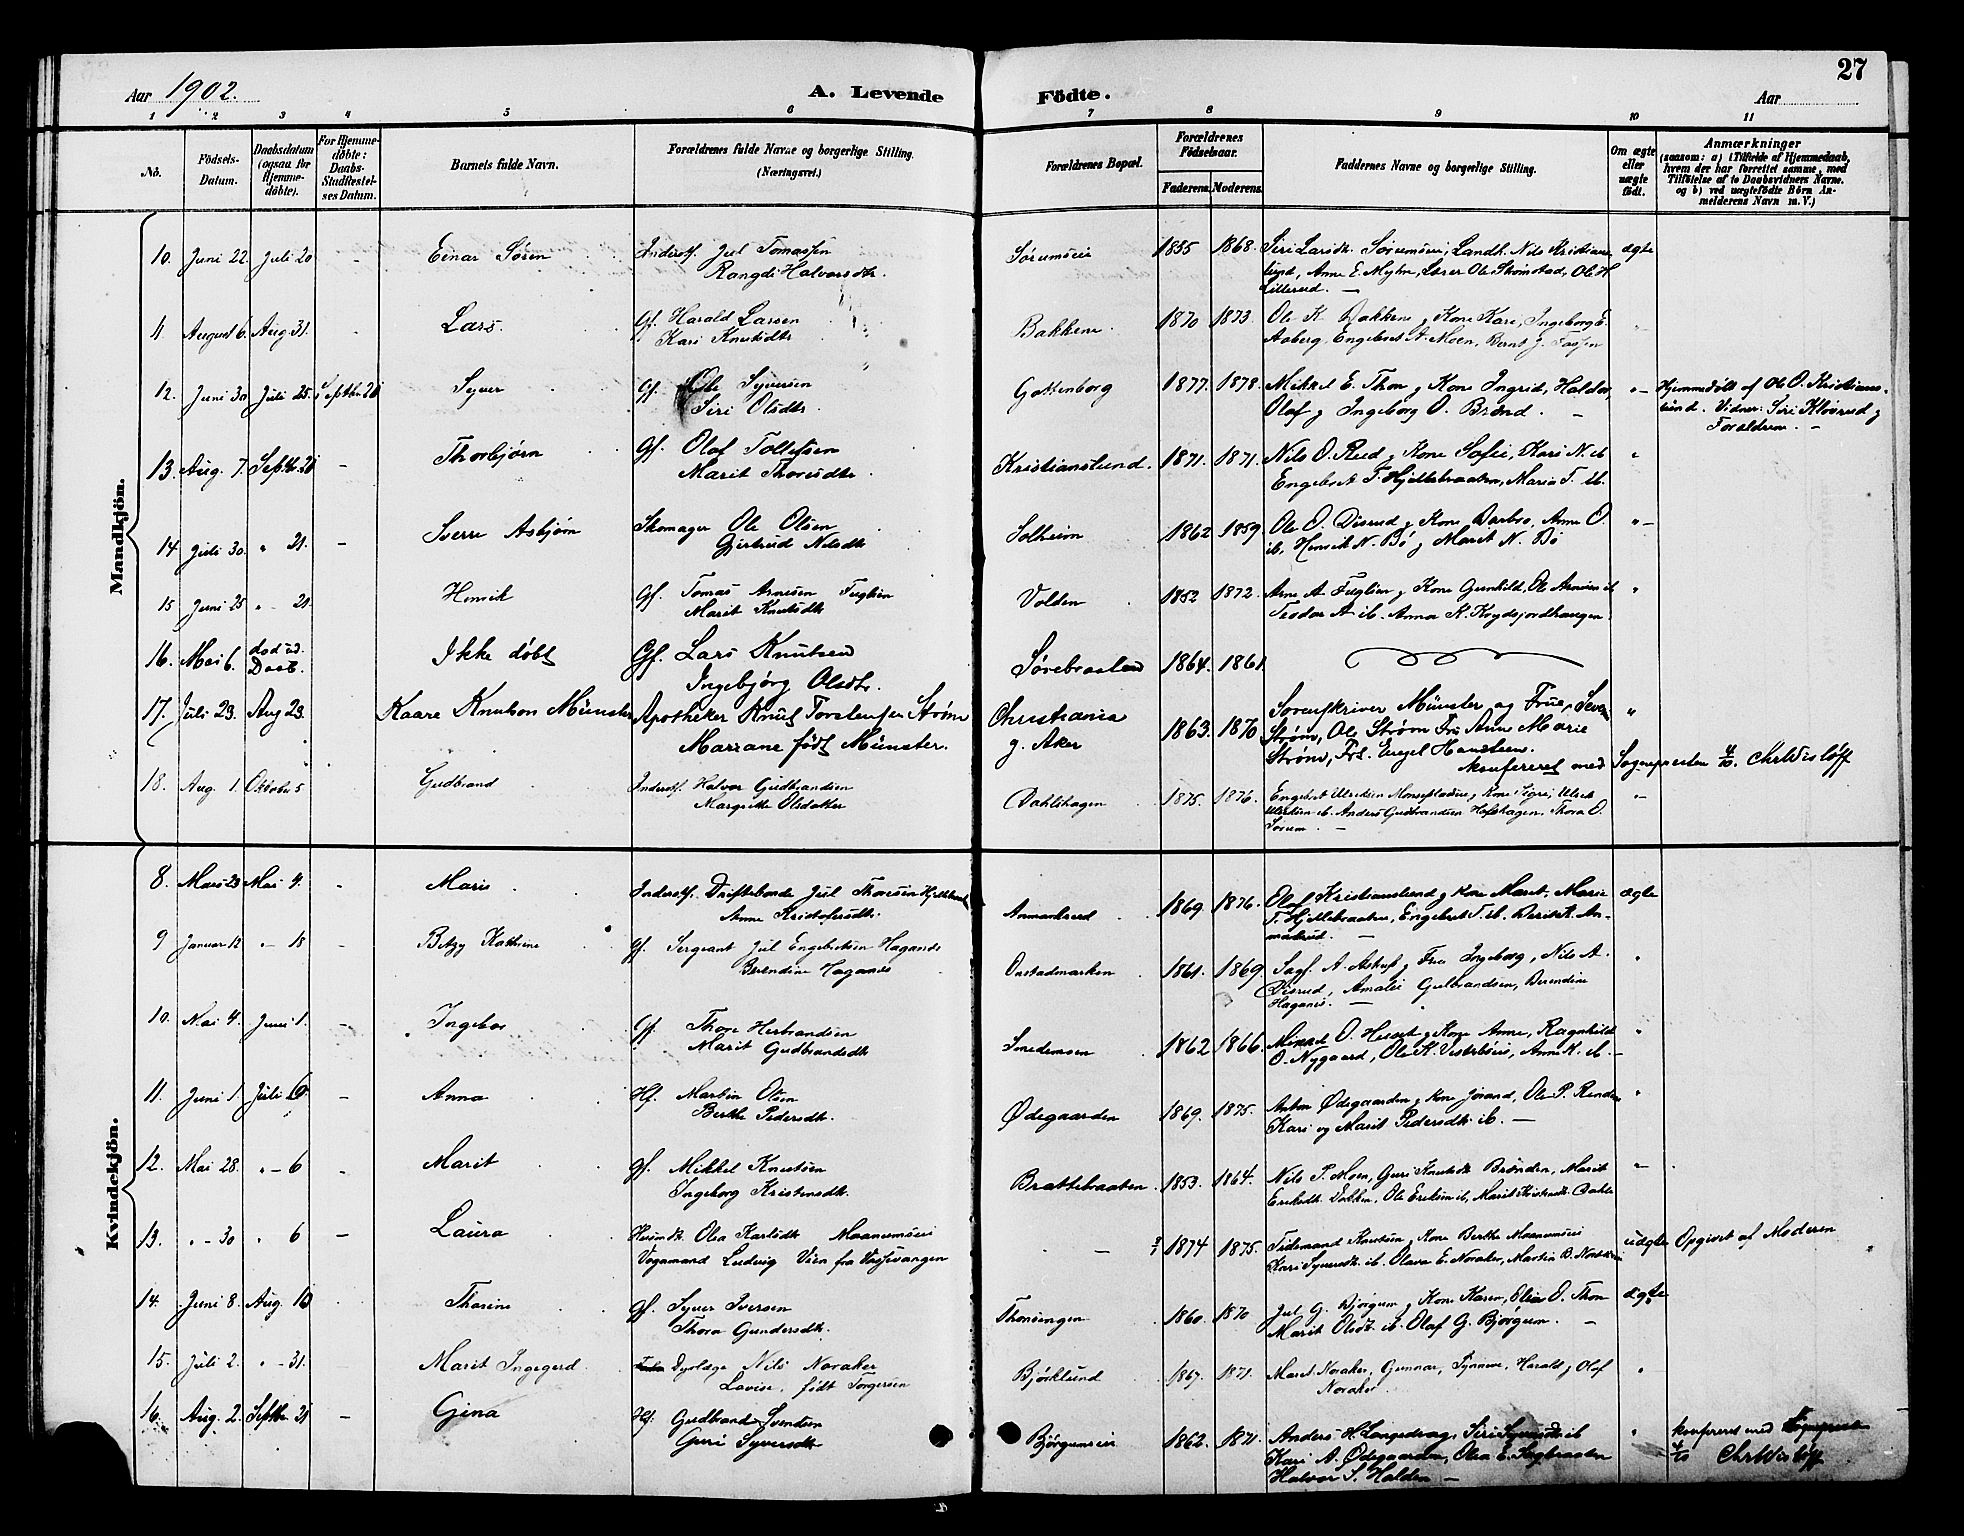 27
Aar 1902.
A. Levende Födte.
Aar
1 2 3 4 5 6 7 8 9 10 11
No.
Födsels-Datum.
Daabsdatum (ogsaa for Hjemme-döbte).
For Hjemme-döbte: Daabs-Stadfæstel-ses Datum.
Barnets fulde Navn.
Forældrenes fulde Navne og borgerlige Stilling.
(Næringsvei.)
Forældrenes Bopæl.
Forældrenes Födselsaar.
Faderens. Moderens.
Faddernes Navne og borgerlige Stilling.
Om ægte eller uægte födt.
Anmærkninger
(saasom: a) i Tilfælde af Hjemmedaab, hvem der har forrettet samme, med Tilföielse af to Daabsvidners Navne. og b) ved uægtefödte Börn An-melderens Navn m. V.)
Mandkjön.
10. Juni 22. Juli 20 - Einar Søren Inderst. Jul Tomassen
Rangdi Halvorsdtr. Sørumseie 1855 1868. Siri Larsdtr. Sørumseie, Landh. Nils Kristians-
lund, Anne E. Myhre, Lærer Ole Skinstad, Ole H
Lillerud. — ægte
11 August 6. Aug. 31. Lars. Gf. Harald Larsen
Kari Knutsdtr Bakkene 1870 1873. Ole K. Bakkene og Kone Kari, Ingeborg E.
Aaberg, Engebret A. Moen, Bernt J. Fossen "
12. Juni 30 Juli 25. Septbr. 28 Syver Gf. Ole Syversen
Siri Olsdtr. Gottenborg 1877. 1878. Mikkel E. Thon og Kone Ingrid, Haldor,
Olaf og Ingeborg O. Brænd. — "- Hjemmedöbt af Ole O. Kristians-
lund. Vidner: Siri Kløvrud og
Forældrene. -
13. Aug. 7. Septbr. 21 - Thorbjørn Gf. Olaf Tollefsen
Marit Thorsdtr. Kristianslund. 1871. 1871. Nils O. Rud og Kone Sofie, Kari N. ib
Engebret T. Hjellebraaten, Maria T. ib. "
14 Juli 30. " 21. - Sverre Asbjørn Skomager Ole Olsen
Gjertrud Nilsdtr Solheim 1862 1859. Ole O. Disrud og Kone Barbro, Anne O.
ib, Henrik N. Bö og Marit N. Bö "-
15 Juni 25 " - 21. Henrik Gf. Tomas Arnesen Fuglien
Marit Knutsdtr Volden 1852 1872. Arne A. Fuglien og Kone Gunhild, Ole Arnesen ib
Teodor A. ib. Anna K. "
16. Mai 6. död ud. Daab. Ikke döbt Gf. Lars Knutsen
Ingebjörg Olsdtr. Sørebraaten 1864. 1861.
17. Juli 23. Aug 23. Kaare Knutson Münster Apotheker Knut Torstensen Strøm
Mariane födt Münster. Christiania
g. Aker 1863. 1870 Sorenskriver Münster og Frue, Severin
Strøm, Ole Strøm Frk Anne Marie
Strøm, Frk. Engel Hansteen. "
konfereret med Sognepresten 4/10. Chr Wisløff
18. Aug. 1. Oktober 5 Gudbrand Inderst. Halvor Gudbrandsen
Margrethe Olsdatter Dahlshagen 1875. 1876. Engebret Ulriksen og Kone Sigri, Ulrik
Ulriksen ib. Anders Gudbrandsen Hofshagen. Thora O.
Sørum. - "-
Kvindekjön.
8. Mars 23 Mai 4. - Maris Inderst. Driftsbonde Jul Thoresen
Anne Kristofersdtr. Anmarksrud 1869 1876. Olaf Kristianslund og Kone Marit, Marie
T. Hjellebraaten, Engebret T. ib. Berit K. An-
marksrud. — ægte
9 Januar 12 " - 18 - Betzy Kathrine Gf. Sergeant Jul Engebretsen Haganes
Berendine Haganes Onstadmarken 1861. 1869. Sagf. A. Astrup og Frue Ingeborg, Nils A.
Disrud, Amalie Gulbrandsen, Berendine
Haganes. — "
10. Mai 4. Juni 1. - Ingebor Gf. Thore Herbrandsen
Marit Gudbrandsdtr Smedemoen 1862 1866. Mikkel O. Hesset og Kone Anne, Ragnhild
O. Nygaard, Ole K. Vesterbøie, Anne K. ib. - "
11. Juni 1. Juli 6. - Anna Hf. Martin Olsen
Berthe Pedersdtr. Ødegaarden 1869. 1875. Anton Ødegaarden og Kone Jorand, Ole P. Renden
Kari og Marit Pedersdtr ib. — "
12. Mai 28. " - 6 - Marit Gf. Mikkel Knutsen
Ingeborg Kristensdtr. Brattebraaten 1853. 1864. Nils P. Moen, Guri Knutsdtr Brænden, Marit
Eriksdtr. Dokken, Ole Eriksen ib, Marit Kristensdtr Dahle "-
13. " - 30 " 6 - Laura Husmdtr. Olea Karlsdtr Maanumseie
Vognmand Ludvig Vien fra Vossevangen - 1874 1875. Tidemand Knutsen og Kone Berthe Maanumseie
Kari Syversdtr ib. Olava E. Noraker, Martin B. uægte Opgivet af Moderen
14. Juni 8. Aug. 10 Thorine Gf. Syver Iversen
Thora Gundersdtr. Thonsengen 1860. 1870 Jul G. Bjørgum og Kone Karen, Elias O. Thon
Marit Olsdtr. ib. Olaf G. Bjørgum. - ægte
15. Juli 2. " - 31. Marit Ingegerd Dyrlæge Nils Noraker
Lovise, födt Torgersen Bjørklund 1867. 1871. Marit Noraker, Gunnar, Synnøve, Harald og Olaf
Noraker "
16. Aug. 2. Septbr. 21 - Gina Hf. Gudbrand Svendsen
Guri Syversdtr Bjørgumseie 1862. 1871. Anders H. Langedrag, Siri Syversdtr ib
Kari A. Ødegaarden, Olea E. Hagbraaten
Halvor S. Halden - " konfereret med Sognepresten
4/10 Chr Wisløff